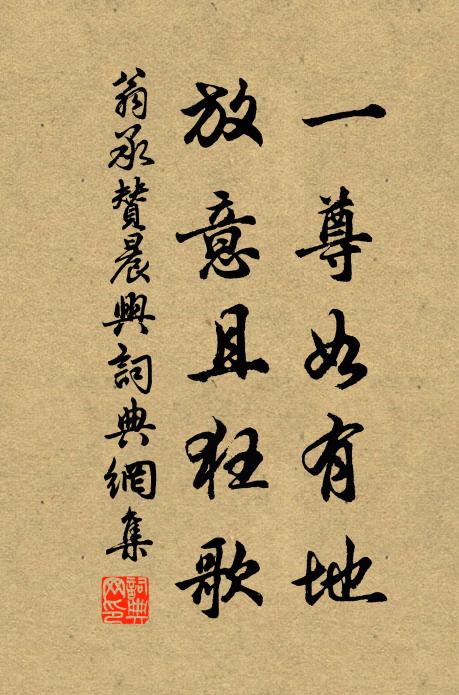 一尊如有地
放意且狂歌
翁承贊晨興詞典網集
詞典网印